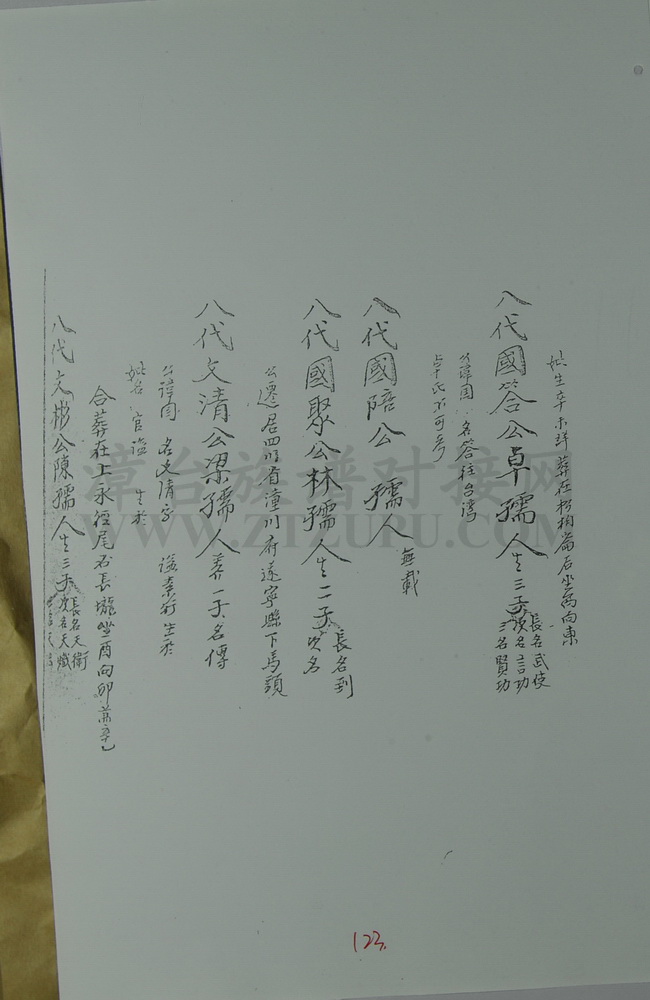 妣生卒未詳葬在杉柏崙后坐馬向東
八代國答公卓孺人生三子長名武使
次名言功
三名賢功
公諱國 名答往台湾
卓氏不可考
八代國陪公 孺人無載
八代國聚公林孺人生二子長名到
次名
公遷居四川省潼川府遂寧縣下馬頭
八代文清公梁孺人养一子名傳
公諱国 名文清 字 諡素 生於
妣名 官諡 生於
合葬在上永徑尾石長壠坐酉向卯
八代文彬公陳孺人生三子長名天衛
次名天
漳台族谱对接网
WWW.ZTZUPU.COM
123.